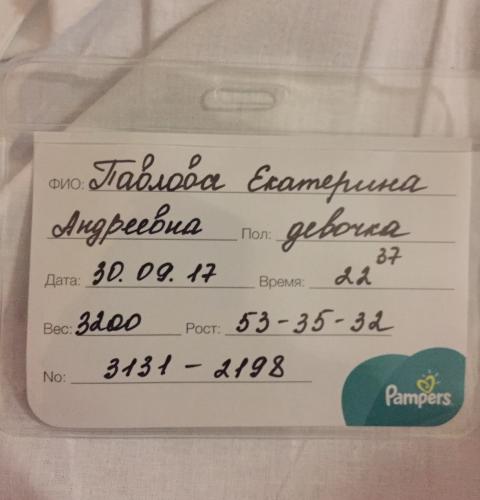 ФИО: Павлова Екатерина
Андреевна Пол: девочка
Дата: 30.09.17 Время: 22 37
Вес: 3200 Рост: 53-35-32
No: 3131-2198
Pampers